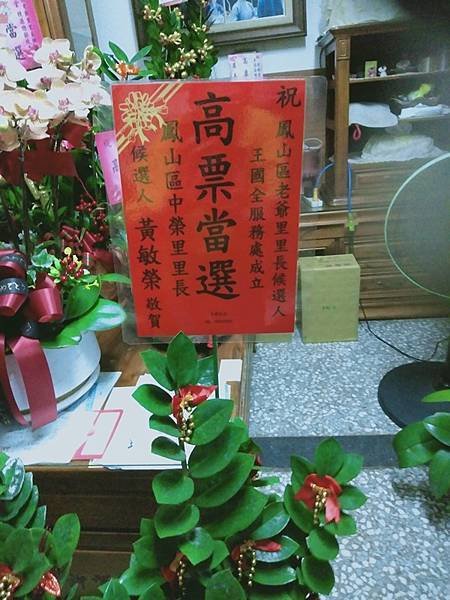 祝 鳳山區老爺里里長候選人
王國全服務處成立
高票當選
鳳山區中榮里里長
候選人 黃敏榮 敬賀
當選